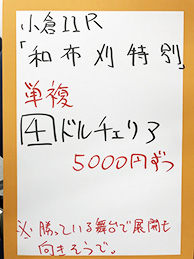 小倉11R
「和布刈特別」
単複
4 ドルチェリア
5000円ずつ
※勝っている舞台で展開も
向きそうで。